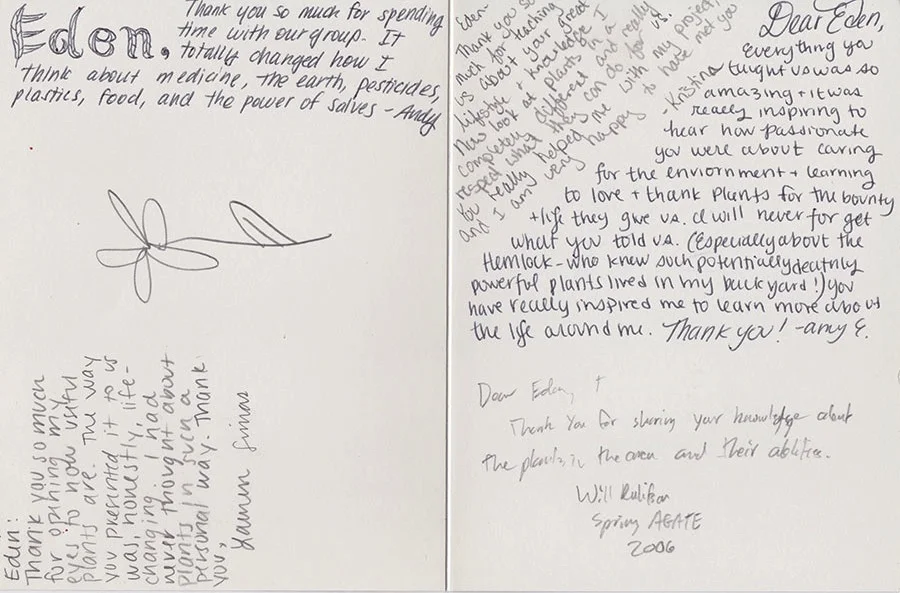 Eden,
Thank you so much for spending
time with our group. It
totally changed how I
think about medicine, the earth, pesticides,
plastics, food, and the power of salves - Andy
Eden:
Thank you so much
for opening my
eyes to how useful
plants are. The way
you presented it to us
was, honestly, life-
changing. I had
never thought about
plants in such a
personal way. Thank
you,
Eden-
Thank you so
much for teaching
us about your great
lifestyle + knowledge I
now look at plants in a
completely different and really
respect what they can do for us.
You really helped me with my project,
and I am very happy to have met you
- Kristina
Dear Eden,
everything you
taught us was so
amazing + it was
really inspiring to
hear how passionate
you were about caring
for the enviornment + learning
to love + thank plants for the bounty
+ life they give us. I will never for get
what you told us. (Especially about the
Hemlock - who knew such potentially deathly
powerful plants lived in my back yard!) you
have really inspired me to learn more about
the life around me. Thank you! - amy E.
Dear Eden,
Thank You for sharing your knowledge about
the plants in the area and their abilities.
Will
Spring AGATE
2006